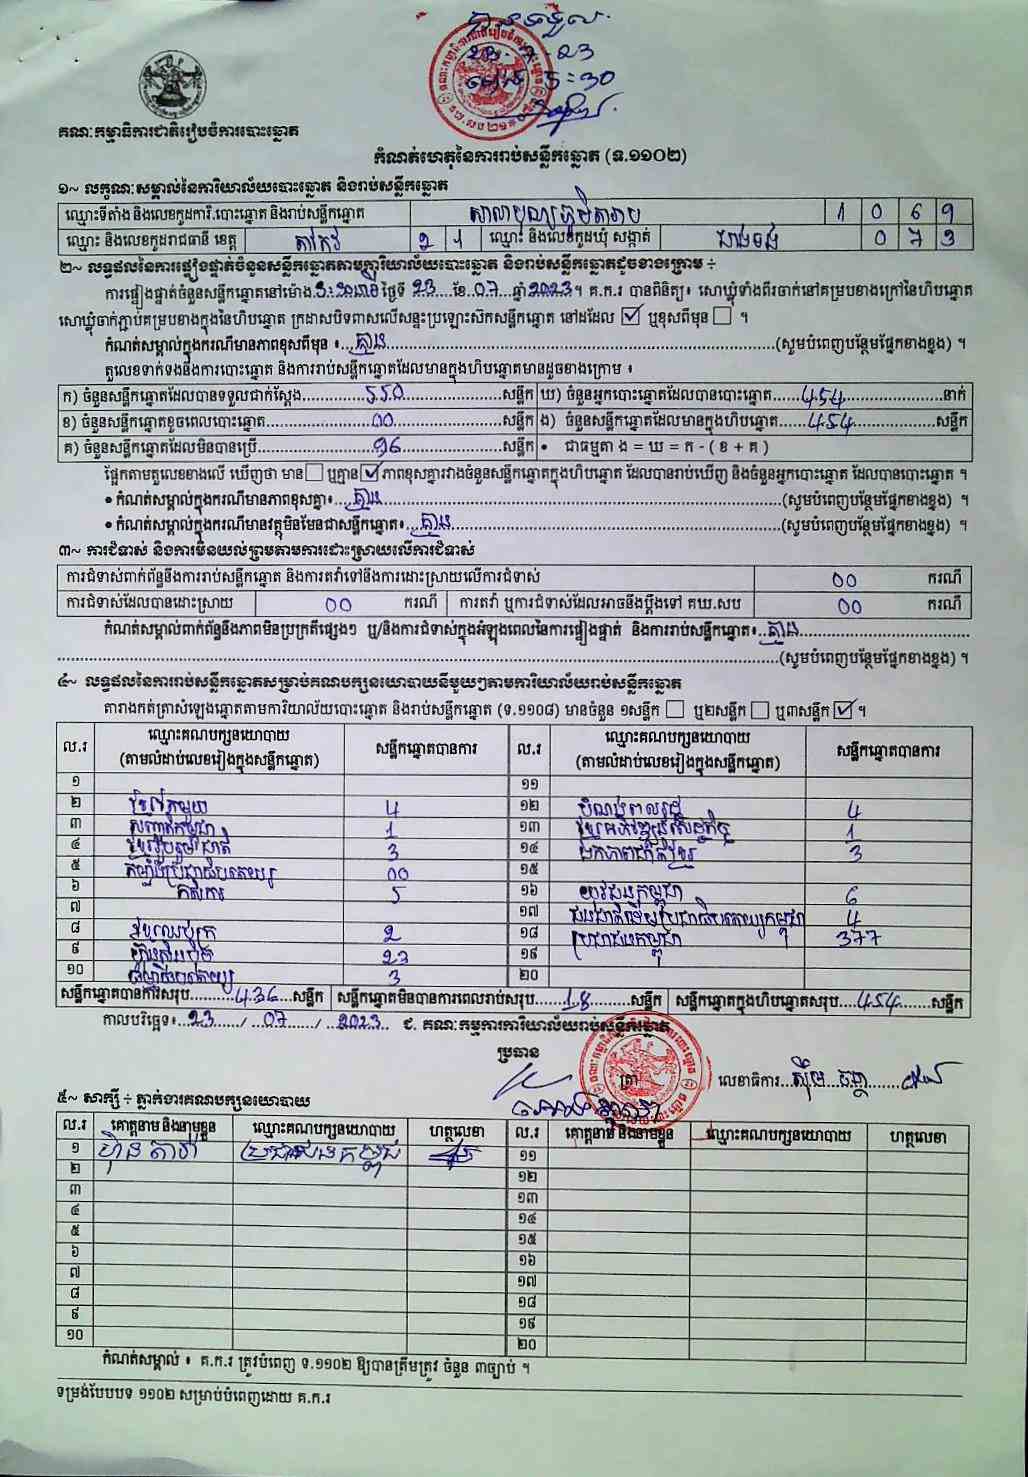 បានទទួល
23-7-23
ម៉ោង 5:30
គណៈកម្មាធិការជាតិរៀបចំការបោះឆ្នោត
កំណត់ហេតុនៃការរាប់សន្លឹកឆ្នោត (ទ.១១០២)
១~ លក្ខណៈសម្គាល់នៃការិយាល័យបោះឆ្នោត និងរាប់សន្លឹកឆ្នោត
ឈ្មោះទីតាំង និងលេខកូដការិ.បោះឆ្នោត និងរាប់សន្លឹកឆ្នោត សាលាបុណ្យភូមិតារាប 1 0 6 9
ឈ្មោះ និងលេខកូដរាជធានី ខេត្ត តាកែវ 2 1 ឈ្មោះ និងលេខកូដឃុំ សង្កាត់ 0 7 3
២~ លទ្ធផលនៃការផ្ទៀងផ្ទាត់ចំនួនសន្លឹកឆ្នោតតាមការិយាល័យបោះឆ្នោត និងរាប់សន្លឹកឆ្នោតដូចខាងក្រោម ÷
ការផ្ទៀងផ្ទាត់ចំនួនសន្លឹកឆ្នោតនៅម៉ោង 3:20នាទី ថ្ងៃទី 23 ខែ 07 ឆ្នាំ 2023។ គ.ក.រ បានពិនិត្យ៖ សោឃ្លុំទាំងពីរចាក់នៅគម្របខាងក្រៅនៃហិបឆ្នោត
សោឃ្លុំចាក់ភ្ជាប់គម្របខាងក្នុងនៃហិបឆ្នោត ក្រដាសបិទពាសលើសន្ទះប្រឡោះស៊កសន្លឹកឆ្នោត នៅដដែល ☑ ឬខុសពីមុន ☐ ។
កំណត់សម្គាល់ក្នុងករណីមានភាពខុសពីមុន ៖ គ្មាន (សូមបំពេញបន្ថែមផ្នែកខាងខ្នង) ។
តួលេខទាក់ទងនឹងការបោះឆ្នោត និងការរាប់សន្លឹកឆ្នោតដែលមានក្នុងហិបឆ្នោតមានដូចខាងក្រោម ៖
ក) ចំនួនសន្លឹកឆ្នោតដែលបានទទួលជាក់ស្តែង 550 សន្លឹក ឃ) ចំនួនអ្នកបោះឆ្នោតដែលបានបោះឆ្នោត 454 នាក់
ខ) ចំនួនសន្លឹកឆ្នោតខូចពេលបោះឆ្នោត 00 សន្លឹក ង) ចំនួនសន្លឹកឆ្នោតដែលមានក្នុងហិបឆ្នោត 454 សន្លឹក
គ) ចំនួនសន្លឹកឆ្នោតដែលមិនបានប្រើ 96 សន្លឹក • ជាធម្មតា ង = ឃ = ក - ( ខ + គ )
ផ្អែកតាមតួលេខខាងលើ ឃើញថា មាន ☐ ឬគ្មាន ☑ ភាពខុសគ្នារវាងចំនួនសន្លឹកឆ្នោតក្នុងហិបឆ្នោត ដែលបានរាប់ឃើញ និងចំនួនអ្នកបោះឆ្នោត ដែលបានបោះឆ្នោត ។
• កំណត់សម្គាល់ក្នុងករណីមានភាពខុសគ្នា៖ គ្មាន (សូមបំពេញបន្ថែមផ្នែកខាងខ្នង) ។
• កំណត់សម្គាល់ក្នុងករណីមានវត្ថុមិនមែនជាសន្លឹកឆ្នោត៖ គ្មាន (សូមបំពេញបន្ថែមផ្នែកខាងខ្នង) ។
៣~ ការជំទាស់ និងការមិនយល់ព្រមតាមការដោះស្រាយលើការជំទាស់
ការជំទាស់ពាក់ព័ន្ធនឹងការរាប់សន្លឹកឆ្នោត និងការតវ៉ាទៅនឹងការដោះស្រាយលើការជំទាស់ 00 ករណី
ការជំទាស់ដែលបានដោះស្រាយ 00 ករណី ការតវ៉ា ឬការជំទាស់ដែលអាចនឹងប្តឹងទៅ គឃ.សប 00 ករណី
កំណត់សម្គាល់ពាក់ព័ន្ធនឹងភាពមិនប្រក្រតីផ្សេងៗ ឬ/និងការជំទាស់ក្នុងអំឡុងពេលនៃការផ្ទៀងផ្ទាត់ និងការរាប់សន្លឹកឆ្នោត៖ គ្មាន
(សូមបំពេញបន្ថែមផ្នែកខាងខ្នង) ។
៤~ លទ្ធផលនៃការរាប់សន្លឹកឆ្នោតសម្រាប់គណបក្សនយោបាយនីមួយៗតាមការិយាល័យរាប់សន្លឹកឆ្នោត
តារាងកត់ត្រាសំឡេងឆ្នោតតាមការិយាល័យបោះឆ្នោត និងរាប់សន្លឹកឆ្នោត (ទ.១១០៨) មានចំនួន ១សន្លឹក ☐ ឬ២សន្លឹក ☐ ឬ៣សន្លឹក ☑ ។
ល.រ ឈ្មោះគណបក្សនយោបាយ (តាមលំដាប់លេខរៀងក្នុងសន្លឹកឆ្នោត) សន្លឹកឆ្នោតបានការ ល.រ ឈ្មោះគណបក្សនយោបាយ (តាមលំដាប់លេខរៀងក្នុងសន្លឹកឆ្នោត) សន្លឹកឆ្នោតបានការ
១ ១១
២ ខ្មែររួមគ្នា 4 ១២ បំណងពលរដ្ឋ 4
៣ សញ្ជាតិកម្ពុជា 1 ១៣ ខ្មែរអភិវឌ្ឍន៍សេដ្ឋកិច្ច 1
៤ ខ្មែររួបរួមជាតិ 3 ១៤ ឯកភាពជាតិខ្មែរ 3
៥ ប្រជាធិបតេយ្យ 00 ១៥
៦ កសិករ 5 ១៦ យុវជនកម្ពុជា 6
៧ ១៧ ជនជាតិដើមប្រជាធិបតេយ្យកម្ពុជា 4
៨ ខ្មែរឈប់ក្រ 2 ១៨ ប្រជាជនកម្ពុជា 377
៩ ហ៊្វុនស៊ិនប៉ិច 23 ១៩
១០ ធម្មាធិបតេយ្យ 3 ២០
សន្លឹកឆ្នោតបានការសរុប 436 សន្លឹក សន្លឹកឆ្នោតមិនបានការពេលរាប់សរុប 18 សន្លឹក សន្លឹកឆ្នោតក្នុងហិបឆ្នោតសរុប 454 សន្លឹក
កាលបរិច្ឆេទ៖ 23 / 07 / 2023 ជ. គណៈកម្មការការិយាល័យរាប់សន្លឹកឆ្នោត
ប្រធាន
ត្រា លេខាធិការ ស៊ឹម
៥~ សាក្សី ÷ ភ្នាក់ងារគណបក្សនយោបាយ
ល.រ គោត្តនាម និងនាមខ្លួន ឈ្មោះគណបក្សនយោបាយ ហត្ថលេខា ល.រ គោត្តនាម និងនាមខ្លួន ឈ្មោះគណបក្សនយោបាយ ហត្ថលេខា
១ ហ៊ិន តារា ប្រជាជនកម្ពុជា ១១
២ ១២
៣ ១៣
៤ ១៤
៥ ១៥
៦ ១៦
៧ ១៧
៨ ១៨
៩ ១៩
១០ ២០
កំណត់សម្គាល់ ៖ គ.ក.រ ត្រូវបំពេញ ទ.១១០២ ឱ្យបានត្រឹមត្រូវ ចំនួន ៣ច្បាប់ ។
ទម្រង់បែបបទ ១១០២ សម្រាប់បំពេញដោយ គ.ក.រ